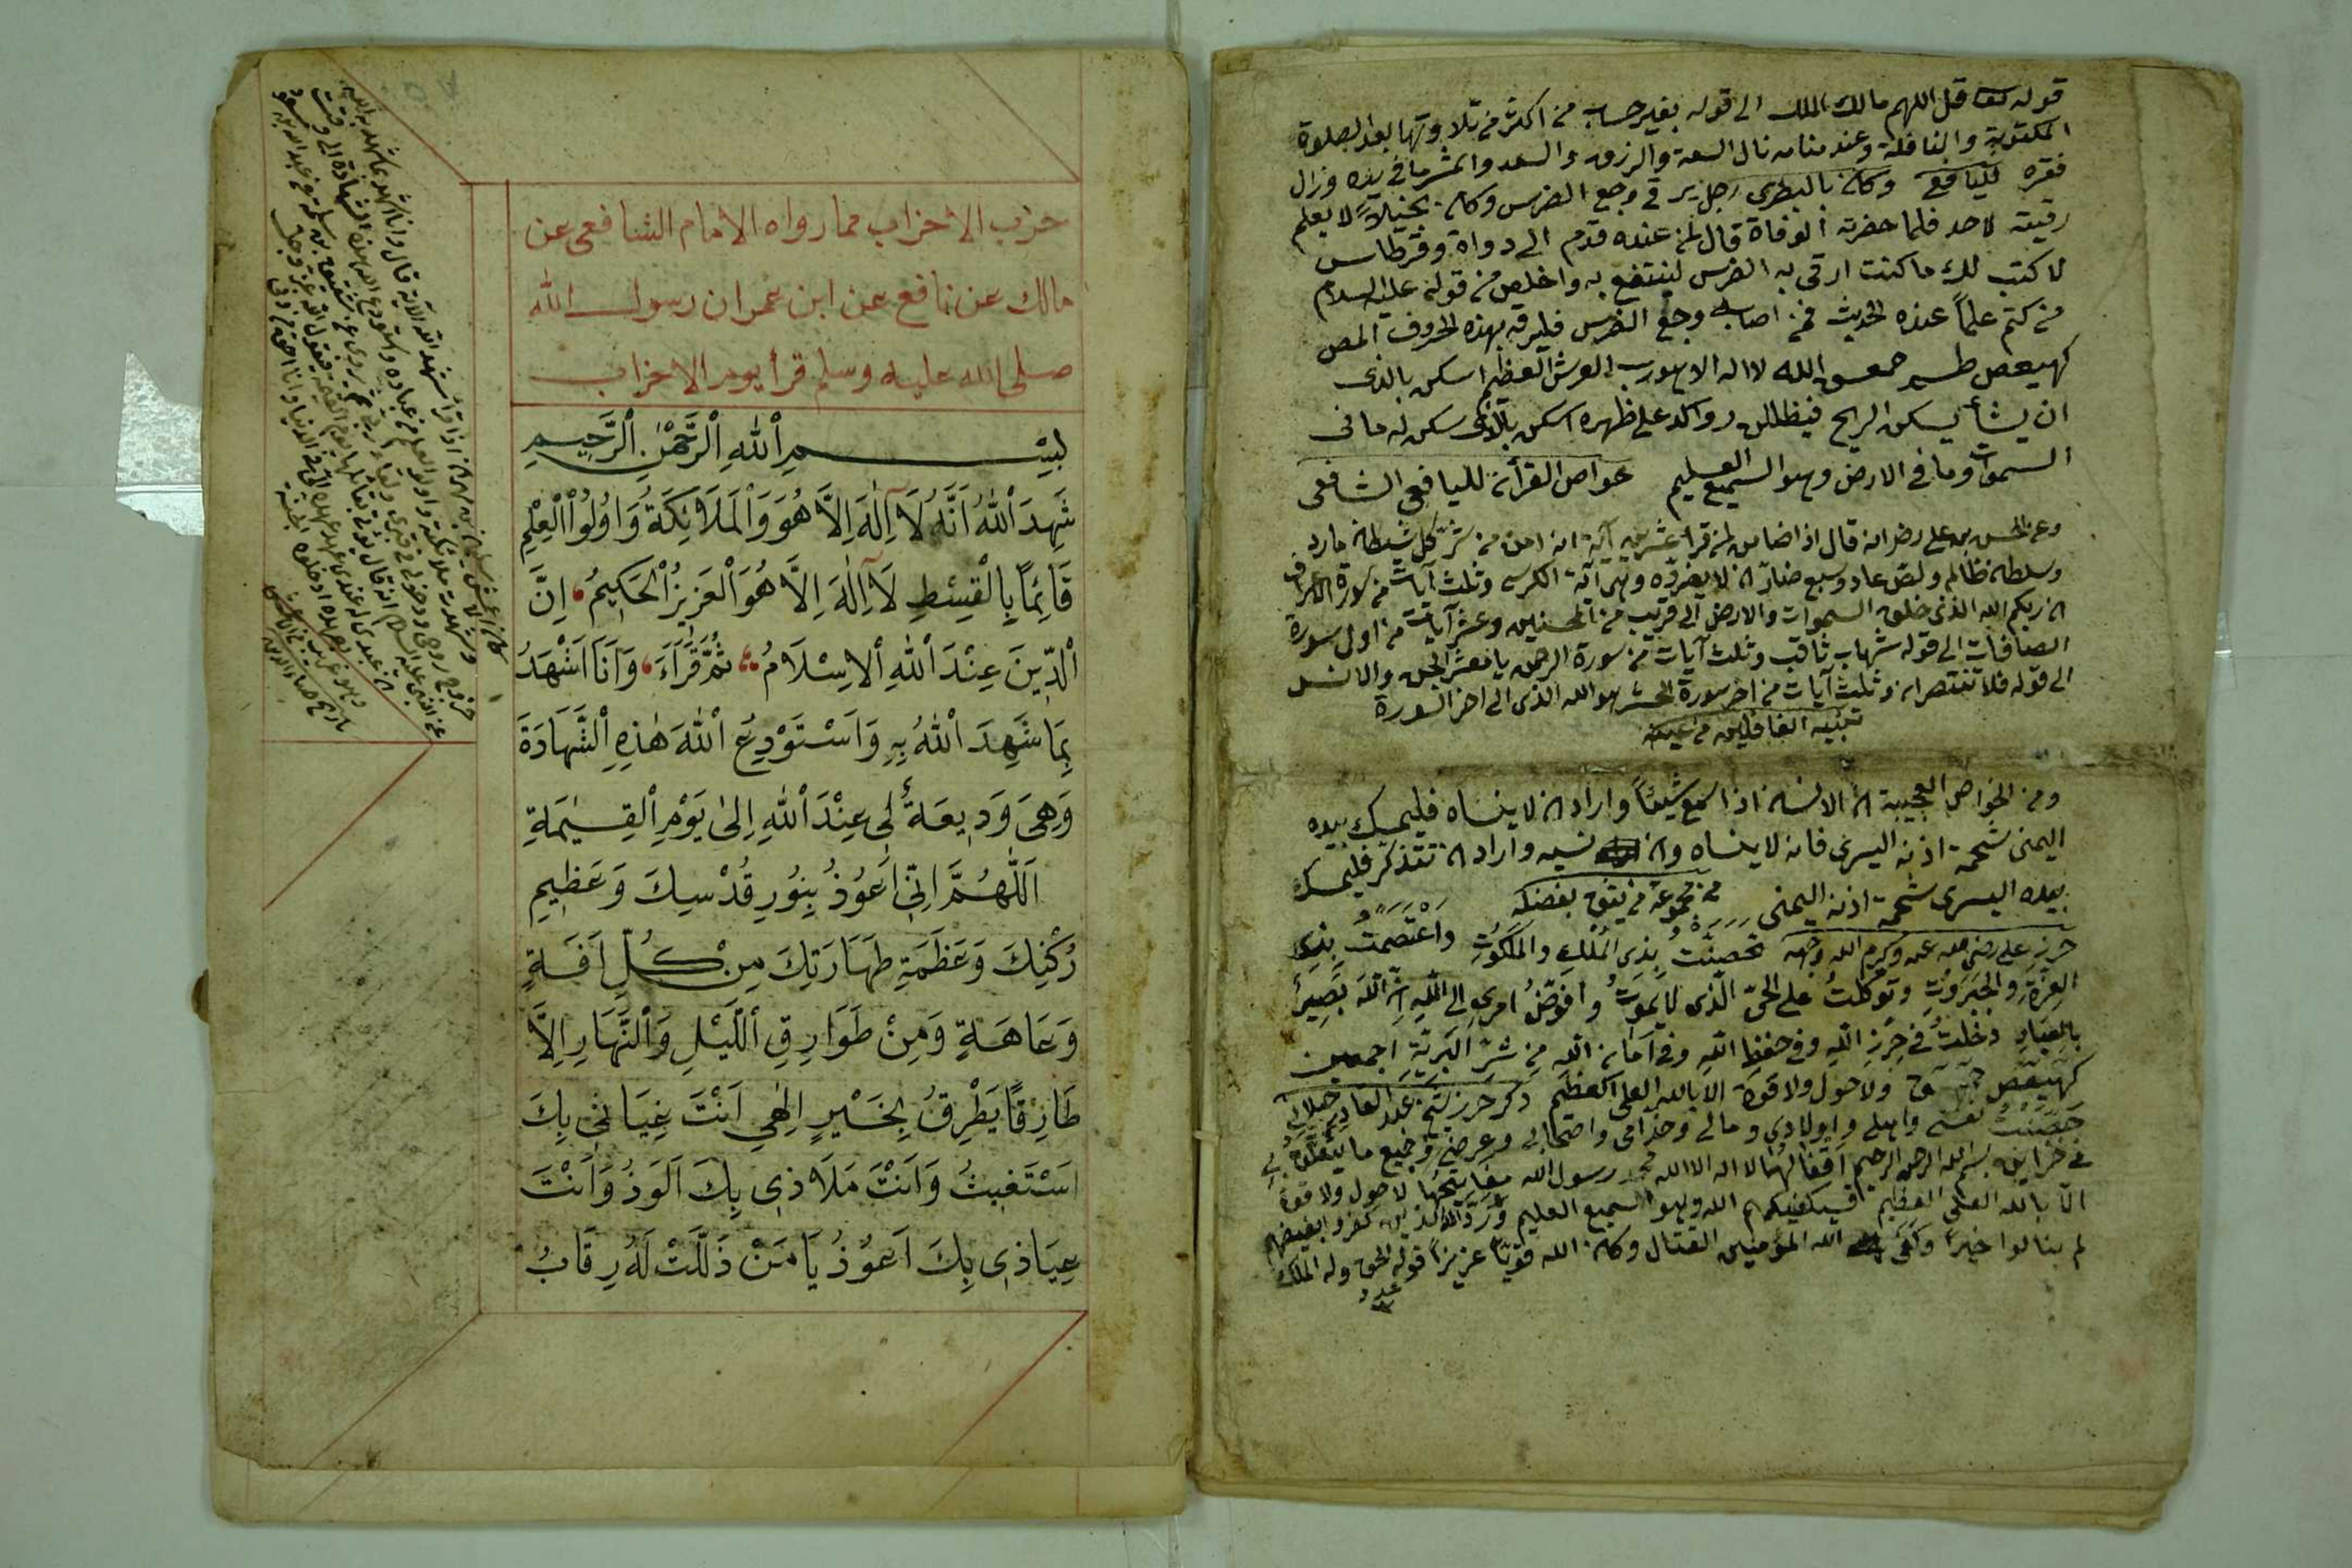 قوله تعا قل اللهم مالك الملك الى قوله بغير حساب من اكثر من تلاوتها بعد الصلوة
المكتوبة والنافلة وعند منامه نال السعة والرزق والسعد واثمر ما في يده وزال
فقره لليافعي وكان بالبصرى رجل يرقى وجع الضرس وكان بخيلاً لا يعلم
رقيته لاحد فلما حضرته الوفاة قال لمن عنده قدم الى دواة وقرطاس
لا كتب لك ما كنت ارقى به الضرس لينتفع به واخلص من قوله عليه السلام
من كتم علماً عنده الحديث فمن اصابه وجع الضرس فليرقه بهذه الحروف المص
كهيعص طسم حمعسق الله لا اله الا هو رب العرش العظيم اسكن بالذى
ان يشأ يسكن الريح فيظللن رواكد على ظهره اسكن بالذى سكن له ما فى
السموات وما فى الارض وهو السميع العليم خواص القرأن لليافعي الشافعى
وعن الحسن بن على رضه انه قال اذا ضامن لمن قرأ عشرين آية ان امن من شر كل شيطان مارد
وسلطان ظالم ولص عاد وسبع ضار ان لا يضره وهي آية الكرسى وثلث آيات من سورة الاعراف
ان ربكم الله الذى خلق السموات والارض الى قريب من المحسنين وعشر آيات من اول سورة
الصافات الى قوله شهاب ثاقب وثلث آيات من سورة الرحمن يا معشر الجن والانس
الى قوله فلا تنتصران وثلث آيات من اخر سورة الحشر هو الله الذى الى اخر السورة
تنبيه الغافلين
ومن الخواص العجيبة ان الانسان اذا سمع شيئاً واراد ان لا ينساه فليمسك بيده
اليمنى شحمة اذنه اليسرى فانه لا ينساه وان نسيه واراد ان تتذكر فليمسك
بيده اليسرى شحمة اذنه اليمنى من مجموعة
حرز على رضى الله عنه وكرم الله وجهه تحصنت بذى الملك والملكوت واعتصمت بذى
العزة والجبروت وتوكلت على الحى الذى لا يموت وافوض امرى الى الله ان الله بصير
بالعباد دخلت فى حرز الله وفى حفظ الله وفى امان الله من شر البرية اجمعين
كهيعص ولا حول ولا قوة الا بالله العلى العظيم ذكر حرز شيخ عبد القادر جيلانى
حصنت نفسى واهلى واولادى ومالى وخدامى واصحابى وعرضى وجميع ما يتعلق بى
فى خزاين بسم الله الرحمن الرحيم اقفالها لا اله الا الله محمد رسول الله مفاتيحها لا حول ولا قوة
الا بالله العلى العظيم فسيكفيكهم الله وهو السميع العليم ورد الله الذين كفروا بغيضهم
لم ينالوا خيراً وكفى الله المؤمنين القتال وكان الله قوياً عزيزاً قوله الحق وله الملك
حزب الاحزاب مما رواه الامام الشافعى عن
مالك عن نافع عن ابن عمر ان رسول الله
صلى الله عليه وسلم قرأ يوم الاحزاب
بِسْمِ اللهِ الرَّحْمٰنِ الرَّحِيمِ
شَهِدَ اللهُ اَنَّهُ لَا اِلٰهَ اِلَّا هُوَ وَالْمَلَائِكَةُ وَاُولُوا الْعِلْمِ
قَائِمًا بِالْقِسْطِ لَا اِلٰهَ اِلَّا هُوَ الْعَزِيزُ الْحَكِيمُ اِنَّ
الدِّينَ عِنْدَ اللهِ الْاِسْلَامُ ثُمَّ قَرَاَءَ وَاَنَا اَشْهَدُ
بِمَا شَهِدَ اللهُ بِهِ وَاَسْتَوْدِعُ اللهَ هٰذِهِ الشَّهَادَةَ
وَهِىَ وَدِيعَةٌ لِى عِنْدَ اللهِ اِلٰى يَوْمِ الْقِيٰمَةِ
اَللّٰهُمَّ اِنِّى اَعُوذُ بِنُورِ قُدْسِكَ وَعَظِيمِ
رُكْنِكَ وَعَظَمَةِ طَهَارَتِكَ مِنْ كُلِّ اٰفَةٍ
وَعَاهَةٍ وَمِنْ طَوَارِقِ اللَّيْلِ وَالنَّهَارِ اِلَّا
طَارِقًا يَطْرِقُ بِخَيْرٍ اِلٰهِى اَنْتَ غِيَاثِى بِكَ
اَسْتَغِيثُ وَاَنْتَ مَلَاذِى بِكَ اَلَوذُ وَاَنْتَ
عِيَاذِى بِكَ اَعُوذُ يَا مَنْ ذَلَّتْ لَهُ رِقَابُ